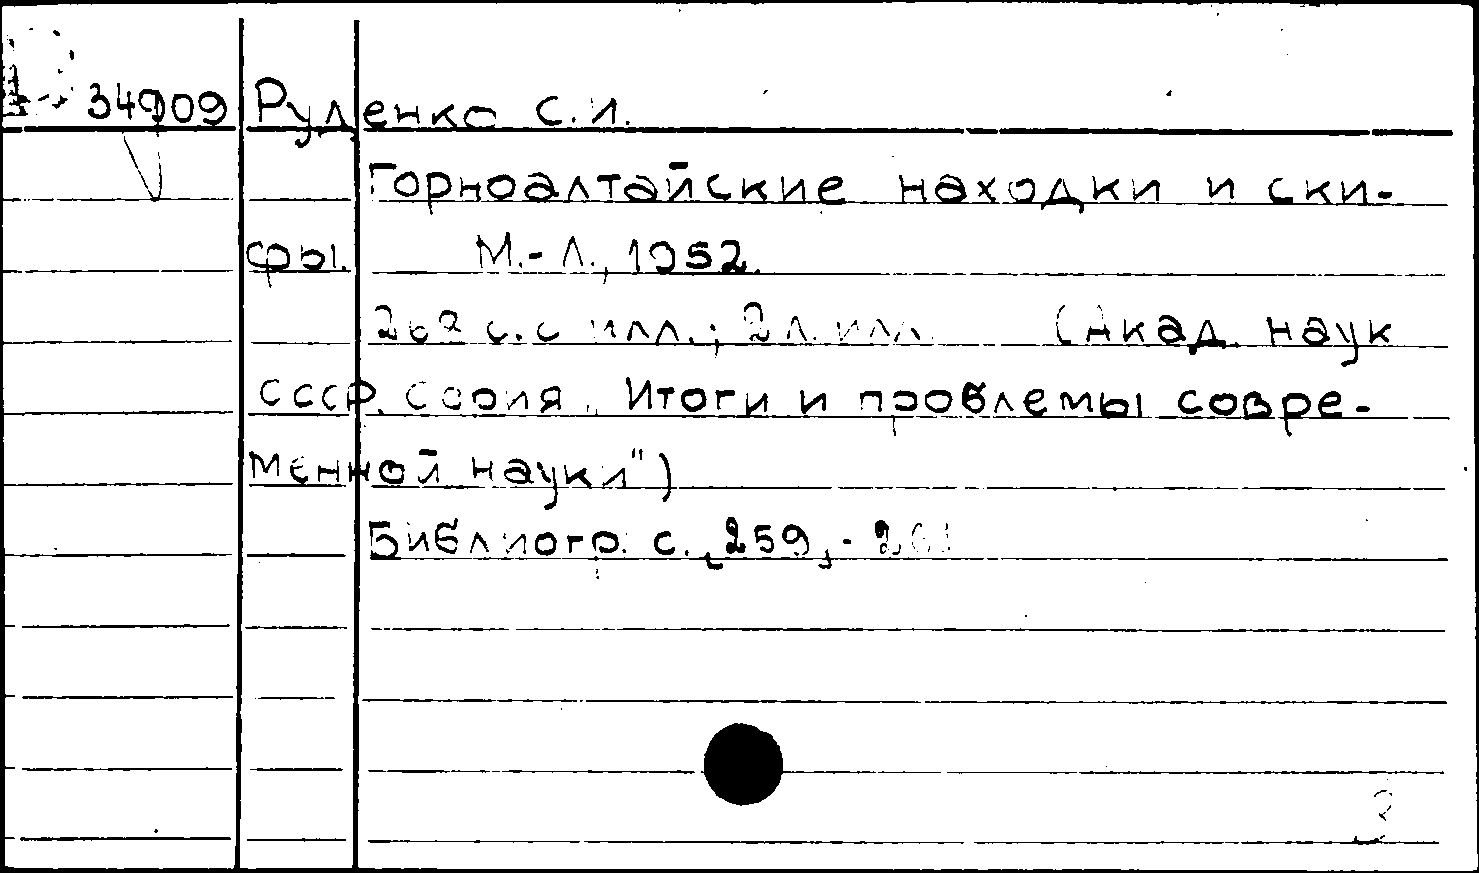 34909 Руденко С.И.
Горноалтайские находки и ски-
фы. М.-Л., 1952.
262 с. с илл.; 2 л. илл. (Акад. наук
СССР. Серия „Итоги и проблемы совре-
менной науки")
Библиогр. с. [259]-261
3